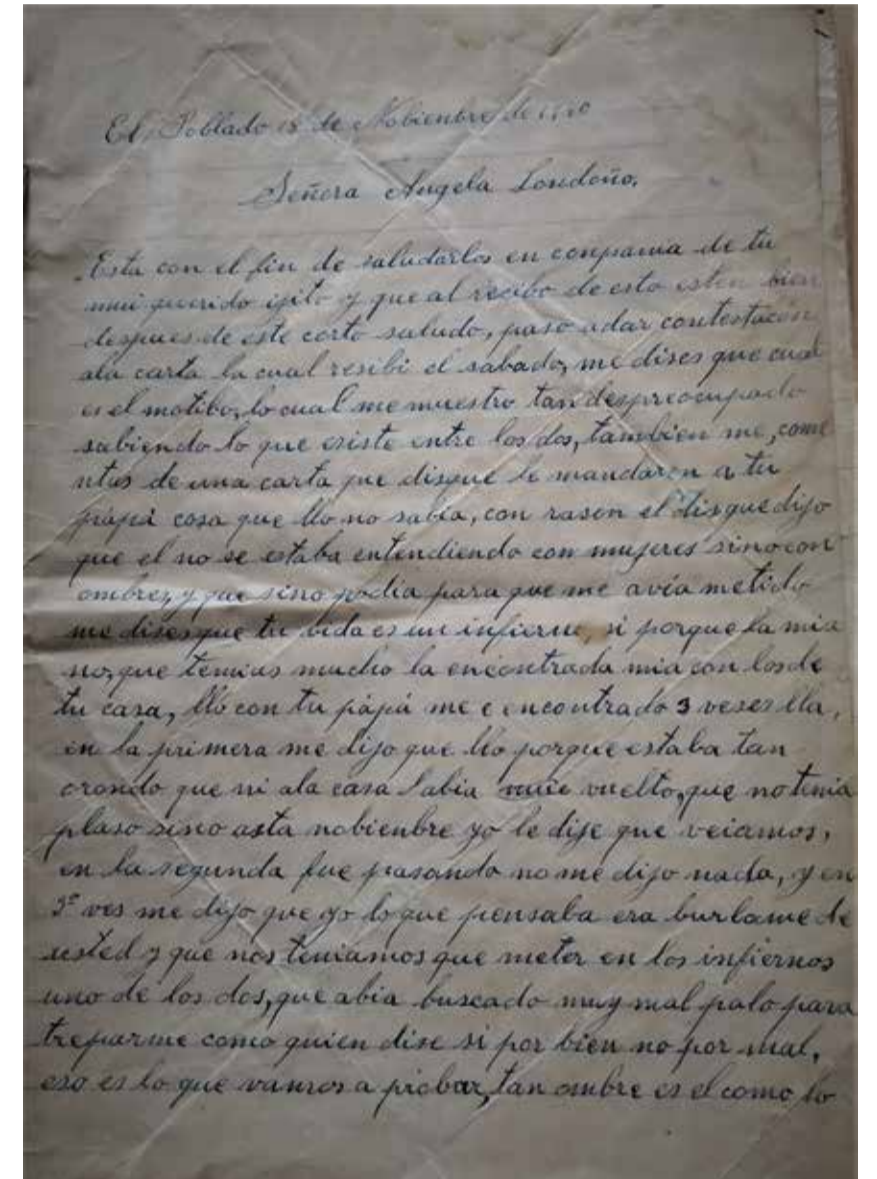 El Poblado 18 de Nobienbre de
Señora Angela Londoño.
Esta con el fin de saludarlos en conpania de tu
mui querido ijito y que al recibo de esta esten bien
despues de este corto saludo, paso adar contestacion
ala carta la cual resibi el sabado, me dises que cual
es el motibo, lo cual me muestro tan despreocupado
sabiendo lo que esiste entre los dos, tambien me, come
ntas de una carta que disque le mandaron a tu
pápá cosa que llo no sabia, con rason el disque dijo
que el no se estaba entendiendo con mujeres sino con
ombres, y que sino podia para que me avia metido
me dises que tu vida es un infierno, si porque la mia
no, que temias mucho la encontrada mia con los de
tu casa, llo con tu pápá me e encontrado 3 veses lla,
en la primera me dijo que llo porque estaba tan
orondo que ni ala casa abia vuelto, que no tenia
plaso sino asta nobienbre yo le dije que veiamos,
en la segunda fue pasando no me dijo nada, y en
3ª ves me dijo que yo lo que pensaba era burlame de
usted y que nos teniamos que meter en los infiernos
uno de los dos, que abia buscado muy mal palo para
treparme como quien dise si por bien no por mal,
eso es lo que vamos a probar, tan ombre es el como lo